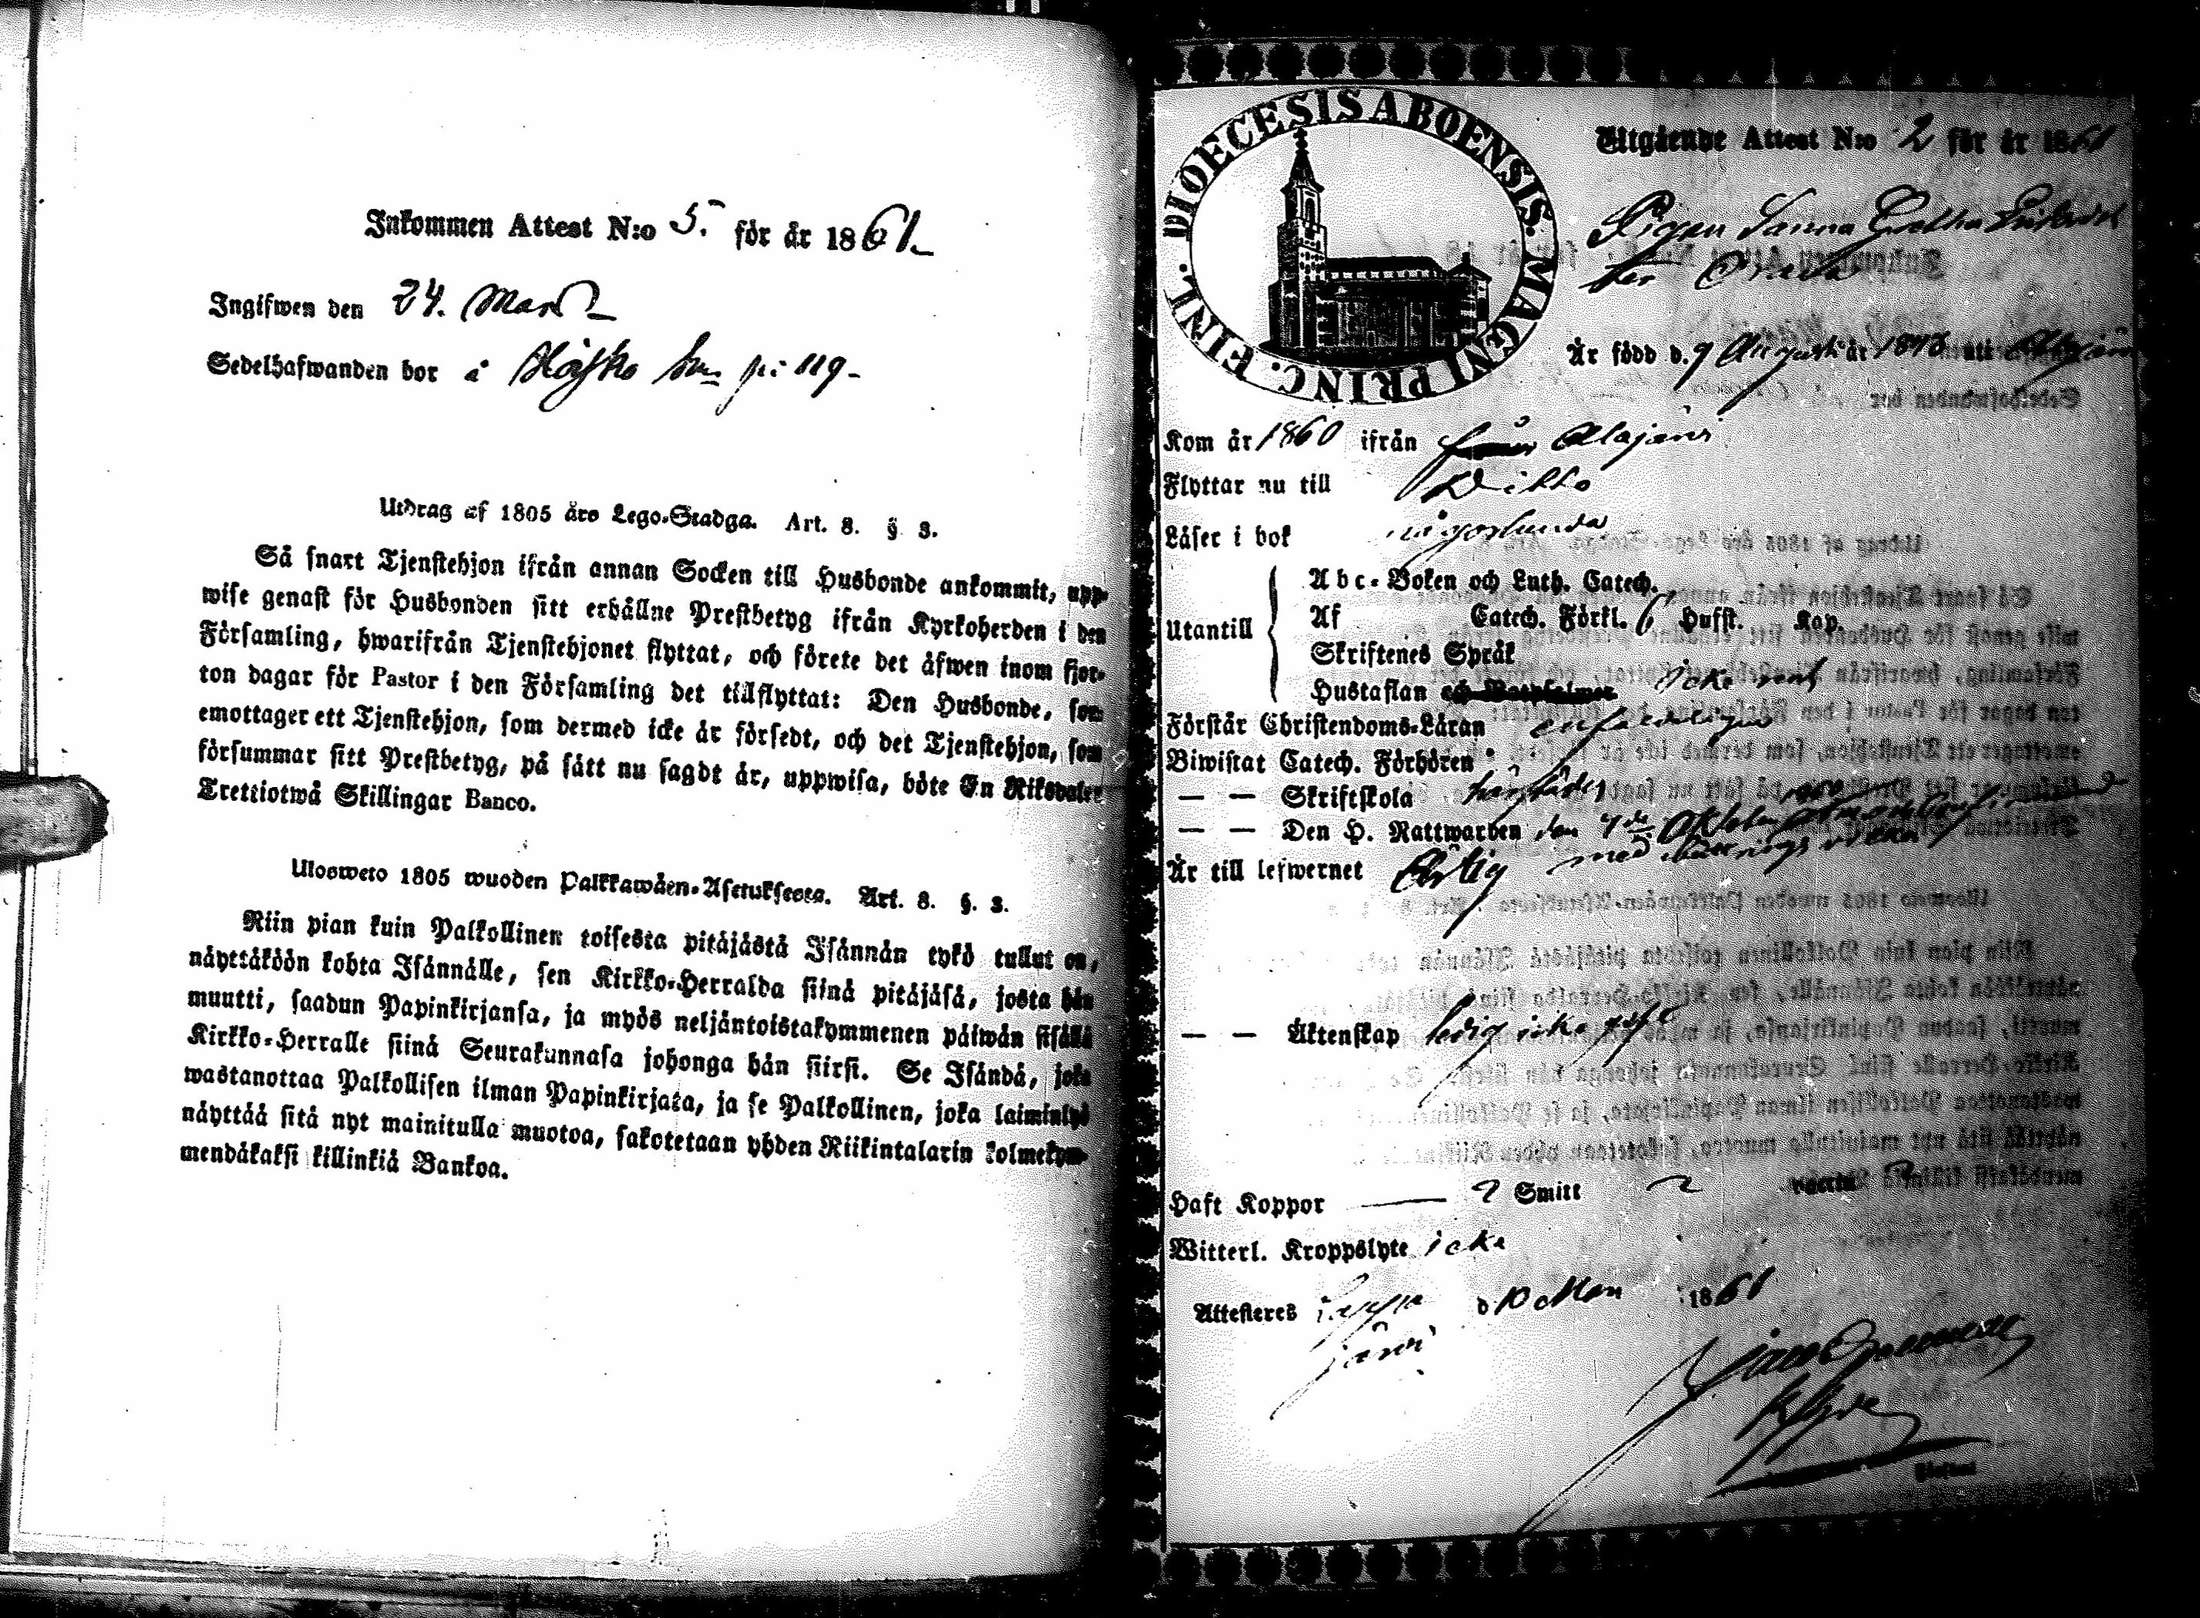 Inkommen Attest N:o 5. för år 1861
Ingifwen den 24. Mart
Sedelhafwanden bor å
Utdrag af 1805 års Lego-Stadga. Art. 8. § 3.
Så snart Tjenstehjon ifrån annan Socken till Husbonde ankommit, upp-
wise genast för Husbonden sitt erhållne Prestbetyg ifrån Kyrkoherden i den
Församling, hwarifrån Tjenstehjonet flyttat, och förete det äfwen inom fjor-
ton dagar för Pastor i den Församling det tillflyttat: Den Husbonde, som
emottager ett Tjenstehjon, som dermed icke är försedt, och det Tjenstehjon, som
försummar sitt Prestbetyg, på sätt nu sagdt är, uppwisa, böte En Riksdaler
Trettiotwå Skillingar Banco.
Ulosweto 1805 wuoden Palkkawäen-Asetuksesta. Art. 8. §. 3.
Niin pian kuin Palkollinen toisesta pitäjästä Isännän tykö tullut on,
näyttäköön kohta Isännälle, sen Kirkko-Herralda siinä pitäjäsä, josta hän
muutti, saadun Papinkirjansa, ja myös neljäntoistakymmenen päiwän sisällä
Kirkko-Herralle siinä Seurakunnasa johonga hän siirsi. Se Isändä, joka
wastanottaa Palkollisen ilman Papinkirjata, ja se Palkollinen, joka laiminlyö
näyttää sitä nyt mainitulla muotoa, sakotetaan yhden Riikintalarin kolmekym-
mendäkaksi killinkiä Bankoa.
DIOECESIS ABOENSIS. MAGNI PRINC. FINL.
Utgående Attest N:o 2 för år 1861
Pigan Sanna Gretha
Är född d. 9 Augusti år att
Kom år 1860 ifrån Alajärvi
Flyttar nu till
Läser i bok någorlunda
Utantill
Abc-Boken och Luth. Catech.
Af Catech. Förkl. 6 Hufst. Kap.
Skriftenes Språk
Hustaflan icke
Förstår Christendoms-Läran enfaldigt
Biwistat Catech. Förhören
— — Skriftskola härstädes
— — Den H. Nattwarden den
Är till lefwernet
— — Äktenskap ledig icke
Haft Koppor — ? Smitt
Witterl. Kroppslyte icke
Attesteras Lappa d. 10 Mars 1861
järvi